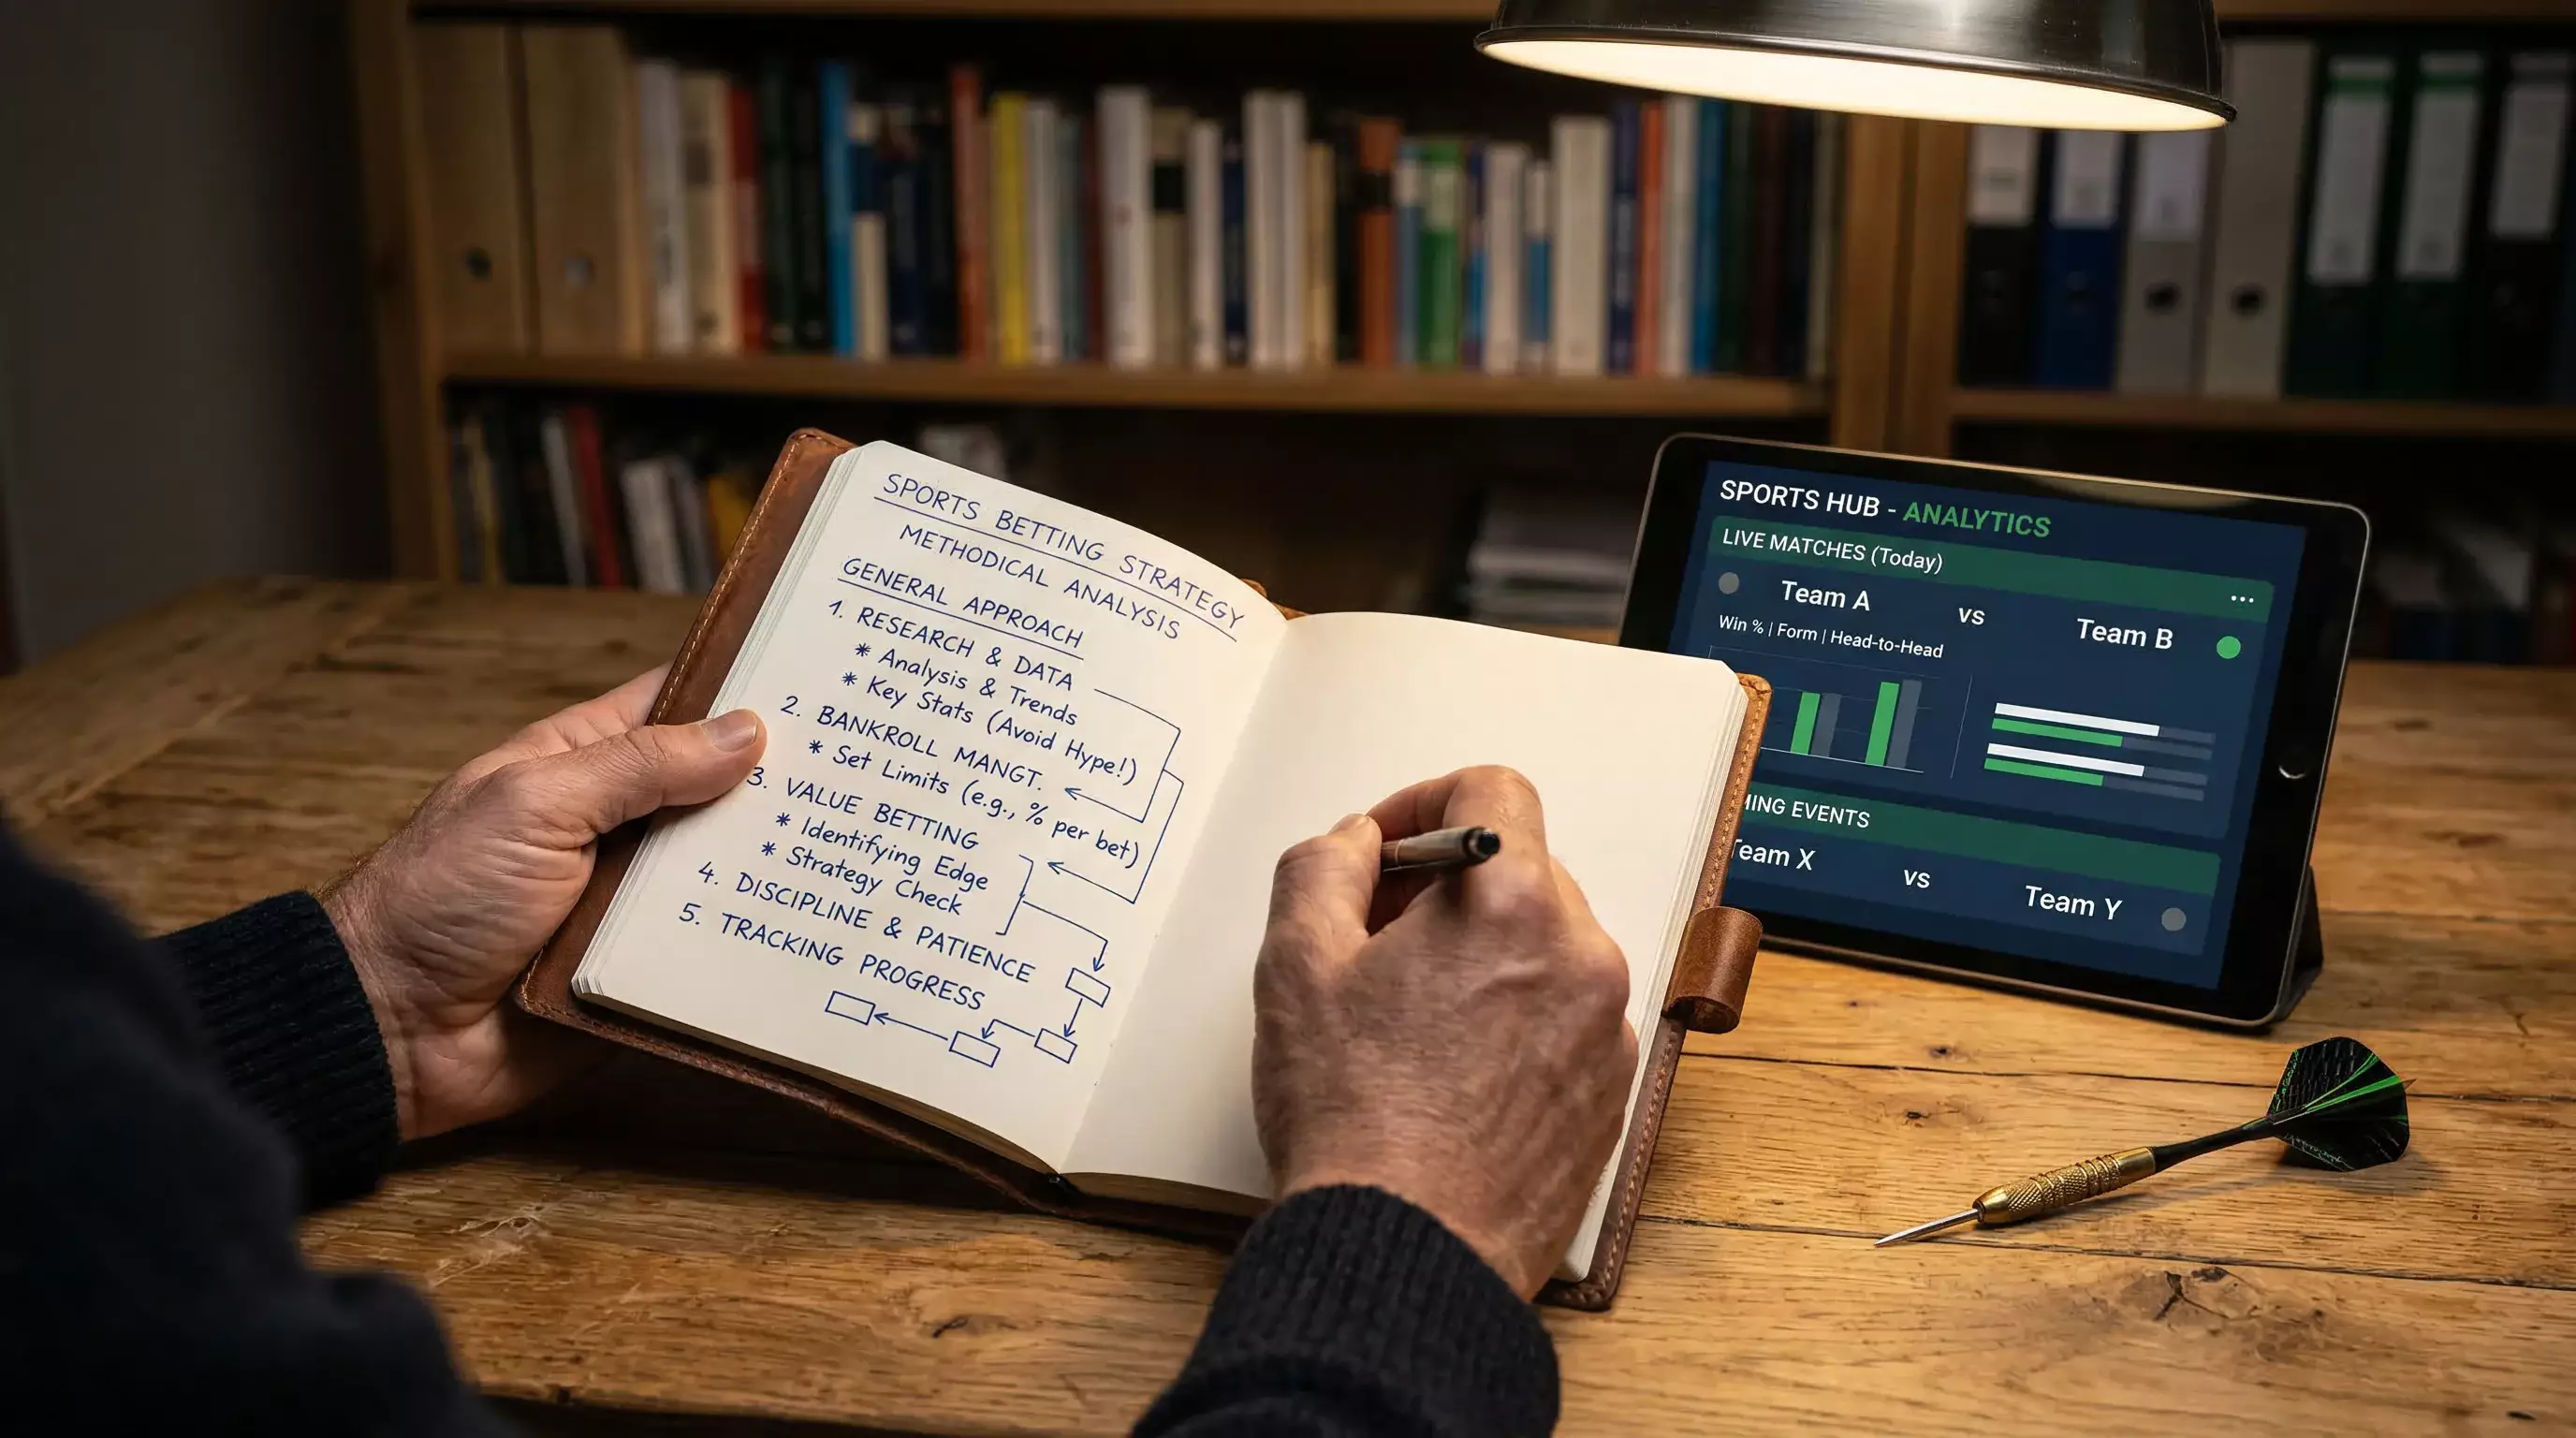 SPORTS BETTING STRATEGY
METHODICAL ANALYSIS
GENERAL APPROACH
1. RESEARCH & DATA
* Analysis & Trends
* Key Stats (Avoid Hype!)
2. BANKROLL MANGT.
* Set Limits (e.g., % per bet)
3. VALUE BETTING
* Identifying Edge
* Strategy Check
4. DISCIPLINE & PATIENCE
5. TRACKING PROGRESS
SPORTS HUB - ANALYTICS
LIVE MATCHES (Today)
...
Team A vs Team B
Win % | Form | Head-to-Head
MING EVENTS
Team X vs Team Y